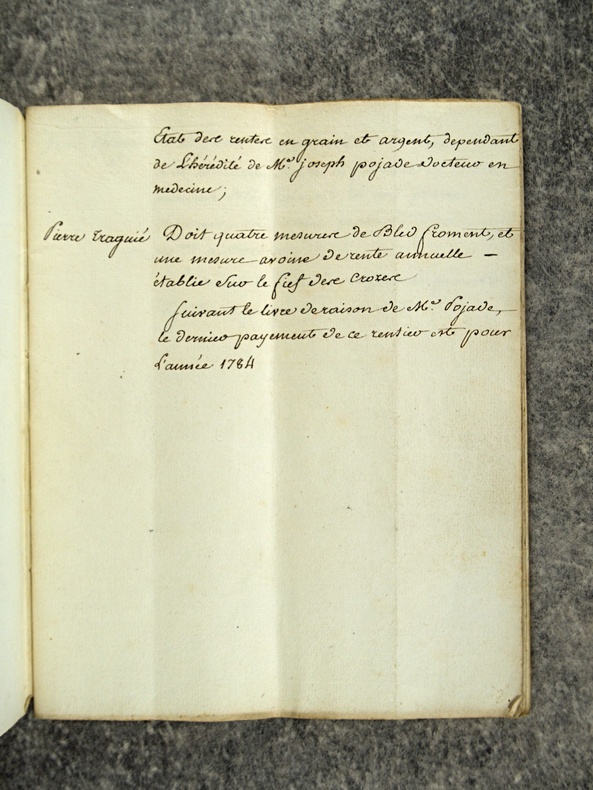 Etat des rentes en grain et argent, dependant
de L'hérédité de Mr. joseph pojade docteur en
medecine;
Pierre traguié Doit quatre mesures de Bled froment, et
une mesure avoine de rente annuelle —
établie sur le fief des Crozes
suivant le livre de raison de Mr. Pojade,
le dernier payement de ce rentier est pour
L'année 1784